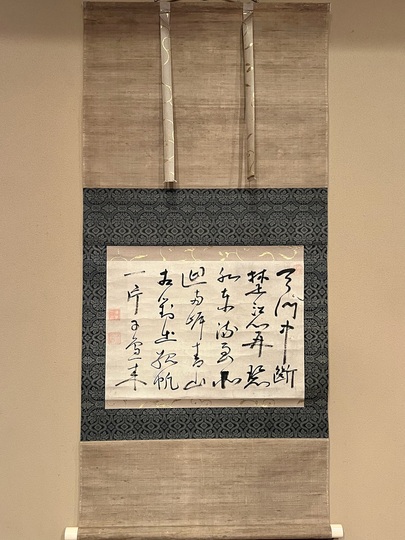 天門中斷
楚江開碧
水東流至此
迴兩岸青山
相對出孤帆
一片日邊来